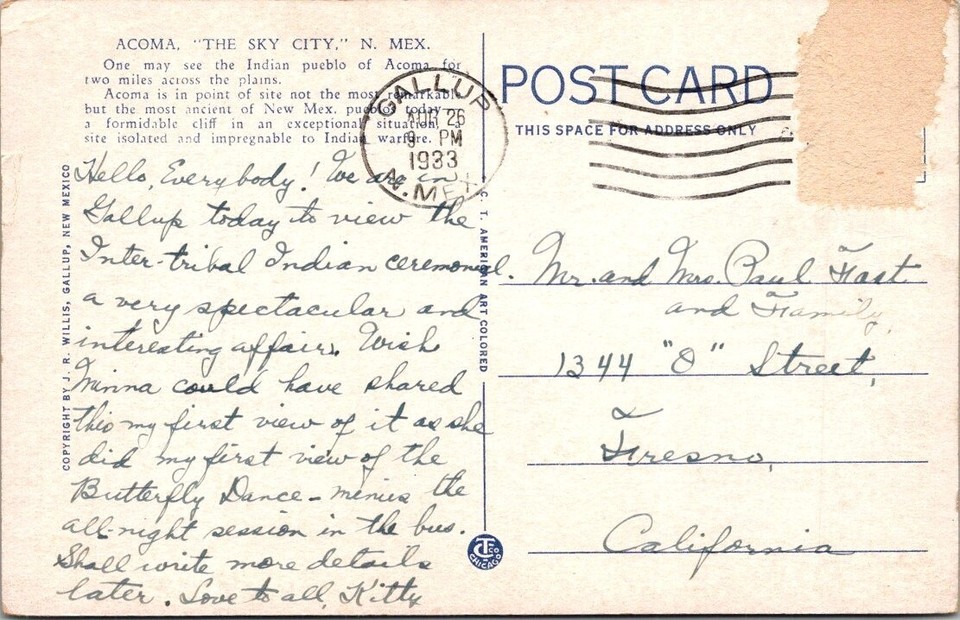 ACOMA, "THE SKY CITY," N. MEX.
One may see the Indian pueblo of Acoma for
two miles across the plains.
Acoma is in point of site not the most remarkable
but the most ancient of New Mex. pueblos today—
a formidable cliff in an exceptional situation, a
site isolated and impregnable to Indian warfare.
COPYRIGHT BY J. R. WILLIS, GALLUP, NEW MEXICO
Hello, Everybody! We are in
Gallup today to view the
Inter-tribal Indian ceremonial.
a very spectacular and
interesting affair. Wish
Minna could have shared
this my first view of it as she
did my first view of the
Butterfly Dance - minus the
all-night session in the bus.
Shall write more details
later. Love to all, Kitty
GALLUP
AUG 26
9 PM
1933
N. MEX.
C. T. AMERICAN ART COLORED
CTCo
CHICAGO
POST CARD
THIS SPACE FOR ADDRESS ONLY
Mr. and Mrs. Paul Fast
and Family,
1344 "O" Street,
Fresno,
California